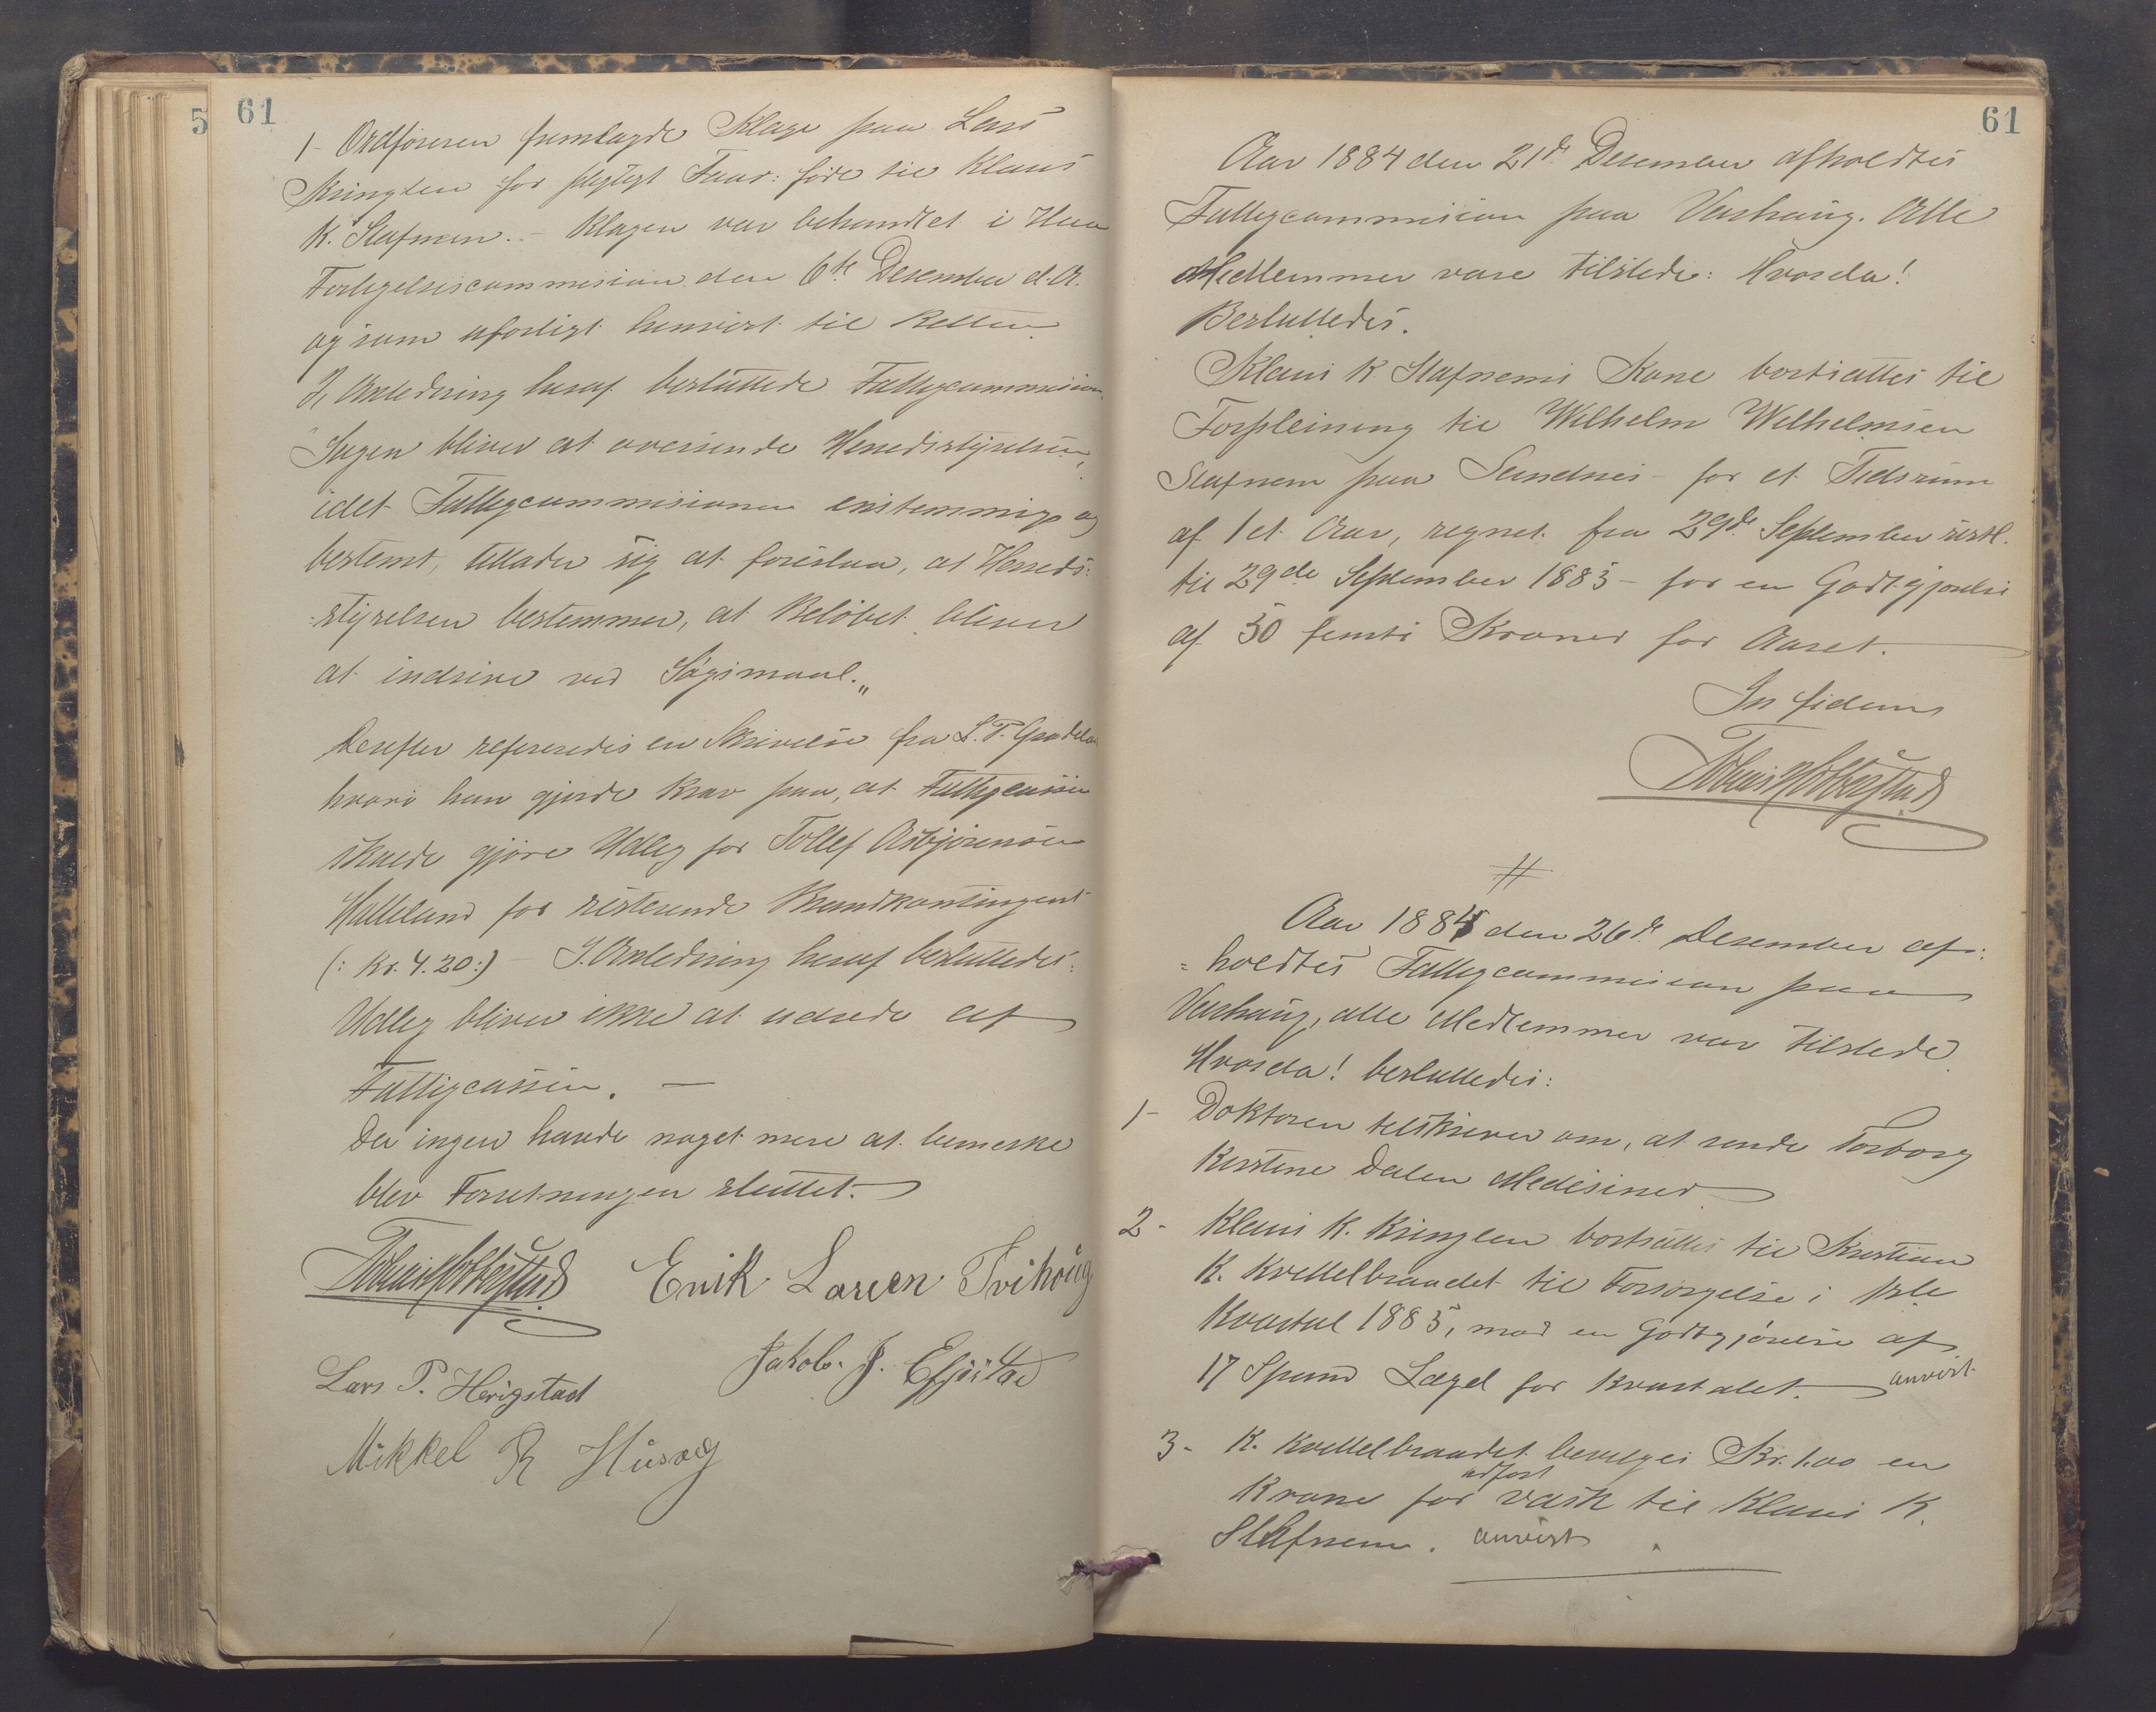 61
1- Ordføreren fremlagde Klage paa Lars
Kringlen for pligtigt Faar: føde til Klaus
K. Stafnem. - Klagen var behandlet i Haa
Forligelsescommission den 6te Desember d. A.
og som uforligt henvist til Retten.
I Anledning heraf besluttede Fattigcommission
"Sagen bliver at oversende Herredsstyrelsen,
idet Fattigcommisionen enstemmigt og
bestemt, tillader sig at foreslaa, at Herreds:
:styrelsen bestemmer, at Beløbet bliver
at indrive ved Søgsmaal."
Derefter refereredes en Skrivelse fra L. P.
hvori han gjorde Krav paa, at Fattigcassen
skulde gjøre Udlæg for Tollef Asbjørnsen
Hatteland for resterende Brandkontingent
(: Kr. 4.20:) - I Anledning heraf besluttedes:
Udlæg bliver ikke at udrede af
Fattigcassen. —
Da ingen havde noget mere at bemerke
blev Forretningen sluttet.
Erik Larsen Tvihoug
Jakob. J.
Lars P. Herigstad
Mikkel R Husvæg
5
61
Aar 1884 den 21de Desember afholdtes
Fattigcommission paa Varhaug. Alle
Medlemmer vare tilstede: Hvorda!
Besluttedes.
Klaus K Stafnems Kone bortsættes til
Forpleining til Wilhelm Wilhelmsen
Stafnem paa Sandnes - for et Tidsrum
af 1 et Aar, regnet fra 29de September sistl.
til 29de September 1885 - for en Godtgjørelse
af 50 femti Kroner for Aaret.
In fidem
#
Aar 1884 den 26de Desember af:
=holdtes Fattigcommission paa
Varhaug, alle Medlemmer var tilstede.
Hvorda! besluttedes:
1- Doktoren tilskrives om, at sende Torborg
Kirstine Dalen Medisiner
2- Klaus K. Kringlen bortsættes til Kristian
K. Kvellelbrandet til Forsørgelse i 1ste
Kvartal 1885, mod en Godtgjørelse af
17 Spund Lægd for Kvartalet. anvist
3- K. Kvellelbrandet bevilges Kr. 1.00 en
Krone for udført vask til Klaus K.
Stafnem. anvist